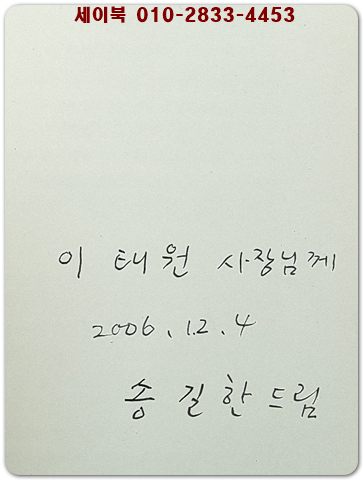 세이북 010-2833-4453
이 태원 사장님께
2006. 12. 4
송 길 한 드림